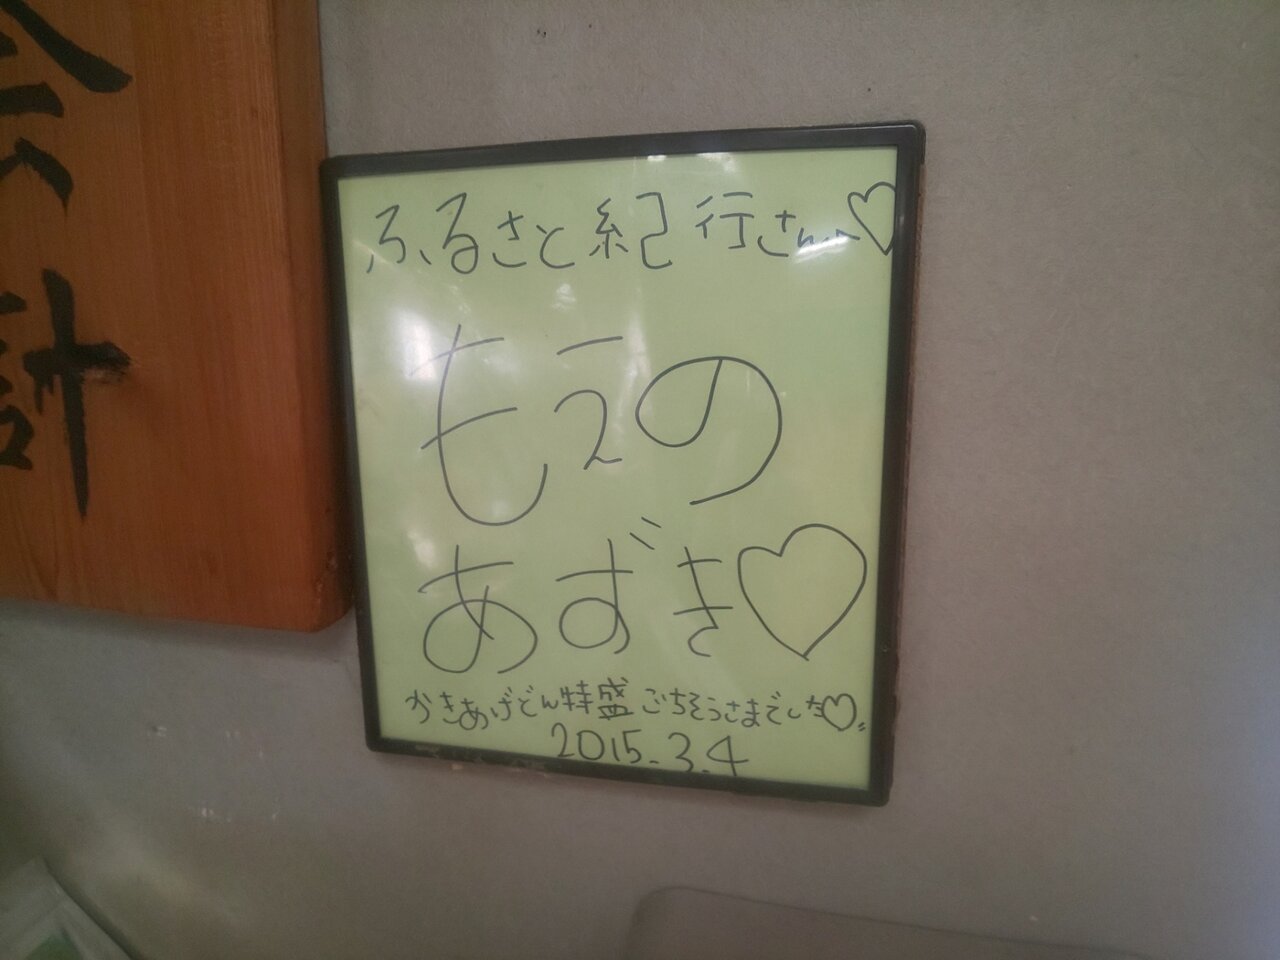 会計
ふるさと紀行さんへ♡
もえの
あずき♡
かきあげどん特盛ごちそうさまでした♡
2015.3.4